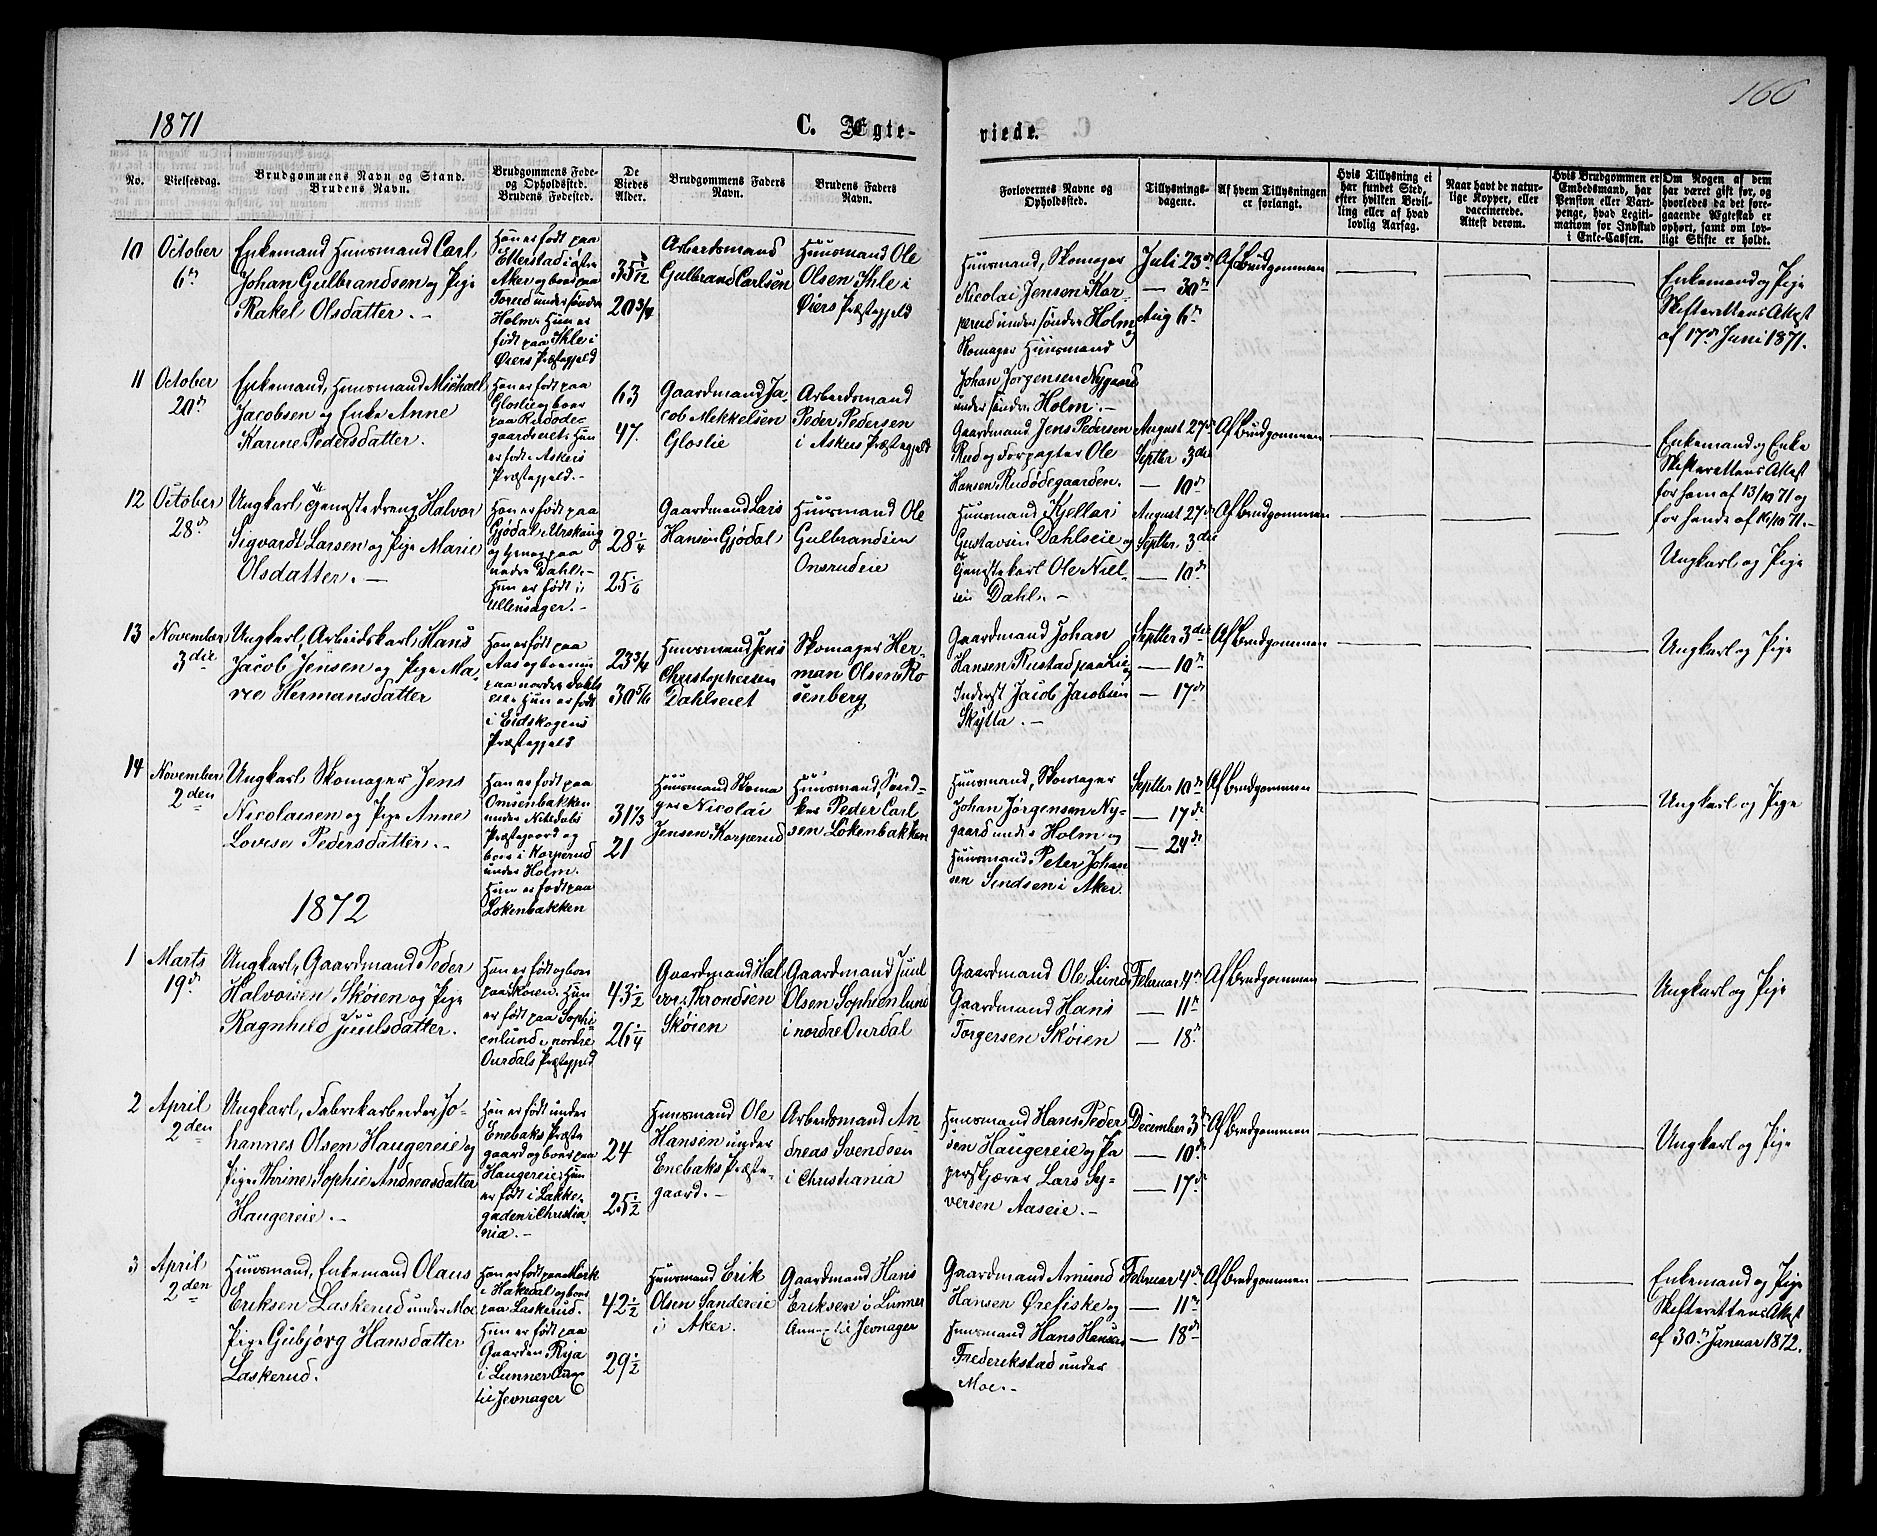 166
1871
C. Ægte-
viede.
No.
Vielsesdag.
Brudgommens Navn og Stand.
Brudens Navn.
Brudgommens Føde-
og Opholdssted.
Brudens Fødested.
De
Viedes
Alder.
Brudgommens Faders
Navn.
Brudens Faders
Navn.
Forlovernes Navne og
Opholdssted.
Tillysnings-
dagene.
Af hvem Tillysningen
er forlangt.
Hvis Tillysning ei
har fundet Sted,
efter hvilken Bevil-
ling eller af hvad
lovlig Aarsag.
Naar havt de natur-
lige Kopper, eller
vaccinerede.
Attest derom.
Hvis Brudgommen er
Embedsmand, har
Pension eller Vart-
penge, hvad Legiti-
mation for Indskud
i Enke-Cassen.
Om Nogen af dem
har været gift før, og
hvorledes da det fore-
gaaende Ægteskab er
ophørt, samt om lov-
ligt Skifte er holdt.
10
October
6te
Enkemand Huusmand Carl
Johan Gulbrandsen og Pige
Rakel Olsdatter. -
Han er født paa
Etterstad i østre
Aker og boer paa
Torud under søndre
Holm. Hun er
født paa Ihle i
Øiers Præstegjeld
35 5/12
20 3/4
Arbeidsmand
Gulbrand Carlsen
Huusmand Ole
Olsen Ihle i
Øiers Præstegjeld
Huusmand, Skomager
Nicolai Jensen Kor-
perud under søndre Holm og
Skomager Huusmand
Johan Jørgensen Nygaard
under søndre Holm. -
Juli 23de
— 30te
Aug 6te
Af Brudgommen
Enkemand og Pige
Skifterettens Attest
af 17de Juni 1871.
11
October
20de
Enkemand, Huusmand Michael
Jacobsen og Enke Anne
Karine Pedersdatter.
Han er født paa
Gloslie og boer
paa Rudøde-
gaardseret. Hun
er født i Askers
Præstegjeld. -
63
47.
Gaardmand Ja-
cob Mekkelsen
Gloslie
Arbeidsmand
Peder Pedersen
i Askers Præstegjeld
Gaardmand Jens Pedersen
Rud og Forpagter Ole
Hansen Rudødegaarden.
August 27de
Septbr 3die
— 10de
Af Brudgommen
Enkemand og Enke
Skifterettens Attest
for ham af 13/10 71 og
for hende af 16/10 71. -
12
October
28de
Ungkarl Tjenestedreng Halvor
Sigvardt Larsen og Pige Marie
Olsdatter. -
Han er født paa
Gjødal i Urskoug
og tjener paa
nedre Dahl. -
Hun er født i
Ullensager. -
28 1/4
25 1/6
Gaardmand Lars
Hansen Gjødal
Huusmand Ole
Gulbrandsen
Onsrudeie
Huusmand Kjellar
Gustavsen Dahlseie og
Tjenestekarl Ole Niel-
sen Dahl. -
August 27de
Septbr. 3die
— 10de
Af Brudgommen
Ungkarl og Pige
13
November
3die
Ungkarl, Arbeidskarl Hans
Jacob Jensen og Pige Ma-
rie Hermansdatter
Han er født paa
Aas og boer
paa nordre Dahls
eie. Hun er født
i Eidskogens
Præstegjeld
23 3/4
30 5/6
Huusmand Jens
Christophersen
Dahlseiet
Skomager Her-
man Olsen Ro
senberg
Gaardmand Johan
Hansen Rustad paa Lie og
Inderst Jacob Jacobsen
Skytta. -
Septbr 3die
— 10de
— 17de
Af Brudgommen
Ungkarl og Pige
14
November
2den
Ungkarl Skomager Jens
Nicolaisen og Pige Anne
Lovise Pedersdatter. -
Han er født paa
Omsenbakken
under Nitedals
Præstegaard og
boer i Korperud
under Holm.
Hun er født paa
Løkenbakken
31 1/3
21
Huusmand Skoma
ger Nicolai
Jensen Korperud
Huusmand, Sned-
ker Peder Carl
sen Løkenbakken
Huusmand, Skomager
Johan Jørgensen Ny-
gaard under Holm og
Huusmand Peter Johan
sen Sindsen i Aker.
Septbr 10de
— 17de
— 24de
Af Brudgommen
Ungkarl og Pige
1872
1
Marts
19de
Ungkarl, Gaardmand Peder
Halvorsen Skøien og Pige
Ragnhild Juulsdatter.
Han er født og boer
paa Skøien. Hun
er født paa Sophi-
enlund i nordre
Ourdals Præstegjeld
43 1/2
26 1/4
Gaardmand Hal
vor Throndsen
Skøien
Gaardmand Juul
Olsen Sophienlund
i nordre Ourdal
Gaardmand Ole Lund
Gaardmand Hans
Torgersen Skøien
Februar 4de
— 11te
— 18de
Af Brudgommen
Ungkarl og Pige
2
April
2den
Ungkarl, Fabrikarbeider Jo-
hannes Olsen Haugereie og
Pige Thrine Sophie Andreasdatter
Haugereie. -
Han er født under
Enebaks Præste
gaard og boer paa
Haugereie. Hun
er født i Lakke-
gaden i Christia
nia. -
24
25 1/2
Huusmand Ole
Hansen under
Enebaks Præste-
gaard. -
Arbeidsmand An-
dreas Svendsen
i Christiania
Huusmand Hans Peder
sen Haugereie og Pa
pirskjærer Lars Sy-
versen Aaseie. -
December 3de
— 10de
— 17de
Af Brudgommen
Ungkarl og Pige
3
April
2den
Huusmand, Enkemand Olaus
Eriksen Laskerud under Moe
Pige Gubjørg Hansdatter
Laskerud.
Han er født paa Mærk
i Hakedal og boer
paa Laskerud.
Hun er født paa
Gaarden Rya
i Lunner Anx
til Jevnager
42 1/2
29 1/2
Huusmand Erik
Olsen Sandereie
i Aker.
Gaardmand Hans
Eriksen i Lunner
Annex til Jevnager
Gaardmand Amund
Hansen Ørefiske og
Huusmand Hans Hansen
Frederikstad under
Moe. -
Februar 4de
— 11te
— 18de
Af Brudgommen
Enkemand og Pige
Skifterettens Attest
af 30te Januar 1872.